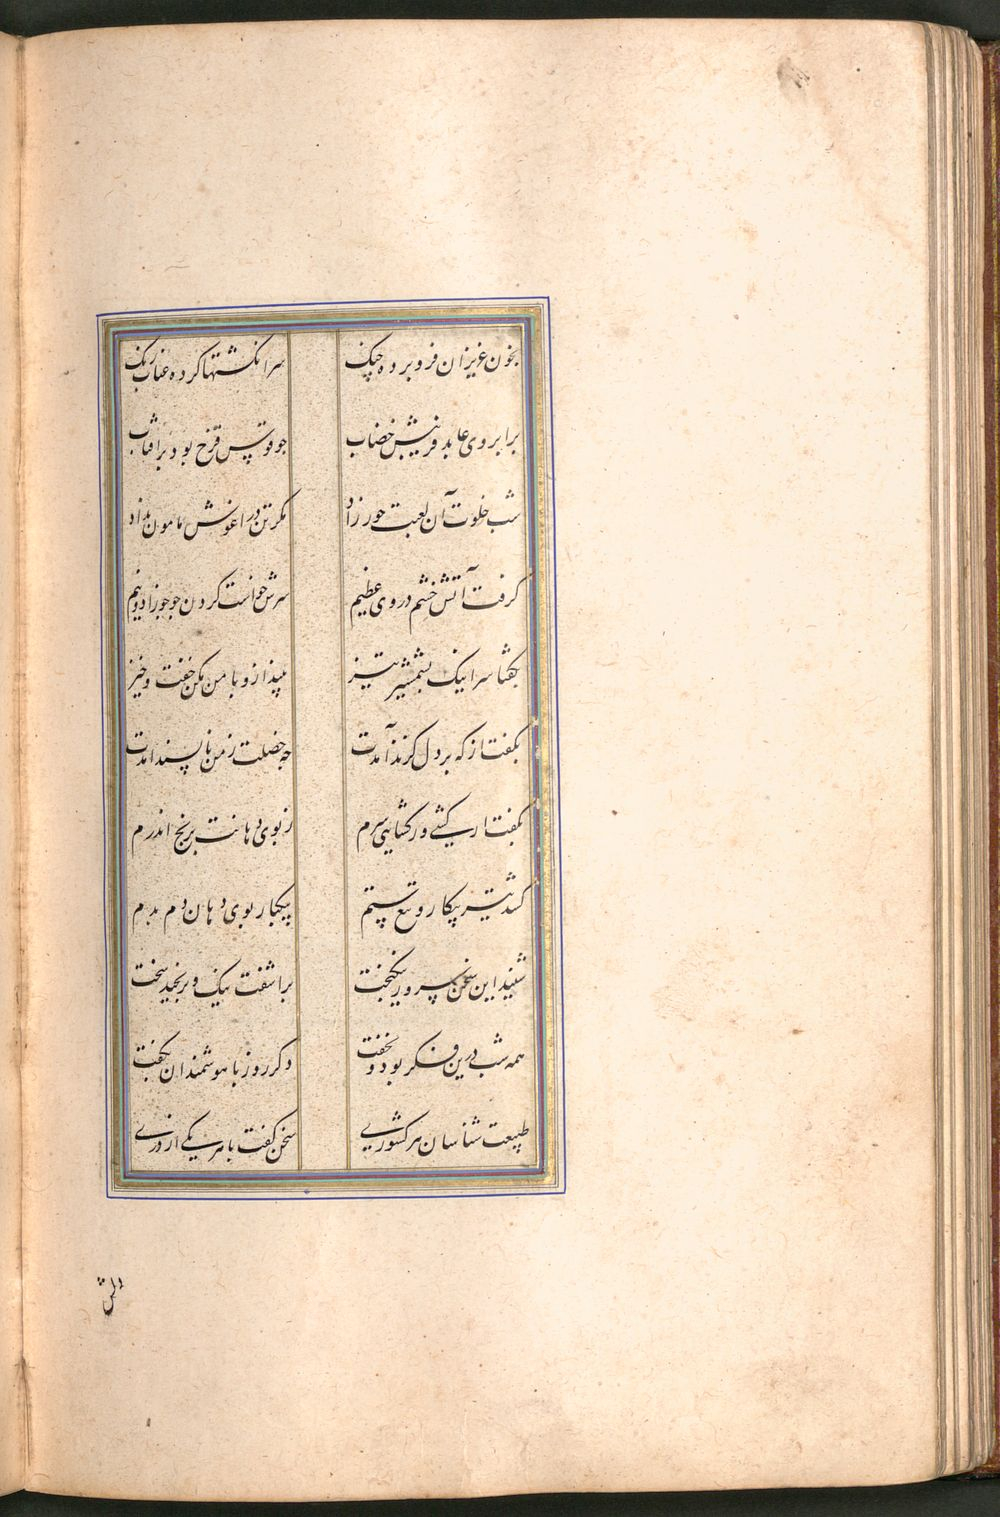 بخون عزیزان فرو برده چنک سر انکشتها کرده عناب رنک
بر ابروی عابد فریبش خضاب چو قوس قزح بود بر افتاب
شب خلوت آن لعبت حور زاد مکر تن در اغوش مامون نداد
کرفت آتش خشم در وی عظیم سرش خواست کردن چو جوزا دو نیم
بکفتا سر اینک بشمشیر تیز بینداز و با من مکن خفت و خیز
بکفت از که بر دل کزند آمدت چه خصلت ز من ناپسند امدت
بکفت ار کشی ور کشایی سرم ز بوی دهانت برنج اندرم
کشد تیر پیکار و تیغ ستم بیکبار بوی دهان دم بدم
شنید این سخن سرور نیکبخت براشفت نیک و برنجید سخت
همه شب درین فکر بود و نخفت دکر روز با هوشمندان بکفت
طبیعت شناسان هر کشوری سخن کفت با هر یکی از دری
دلش